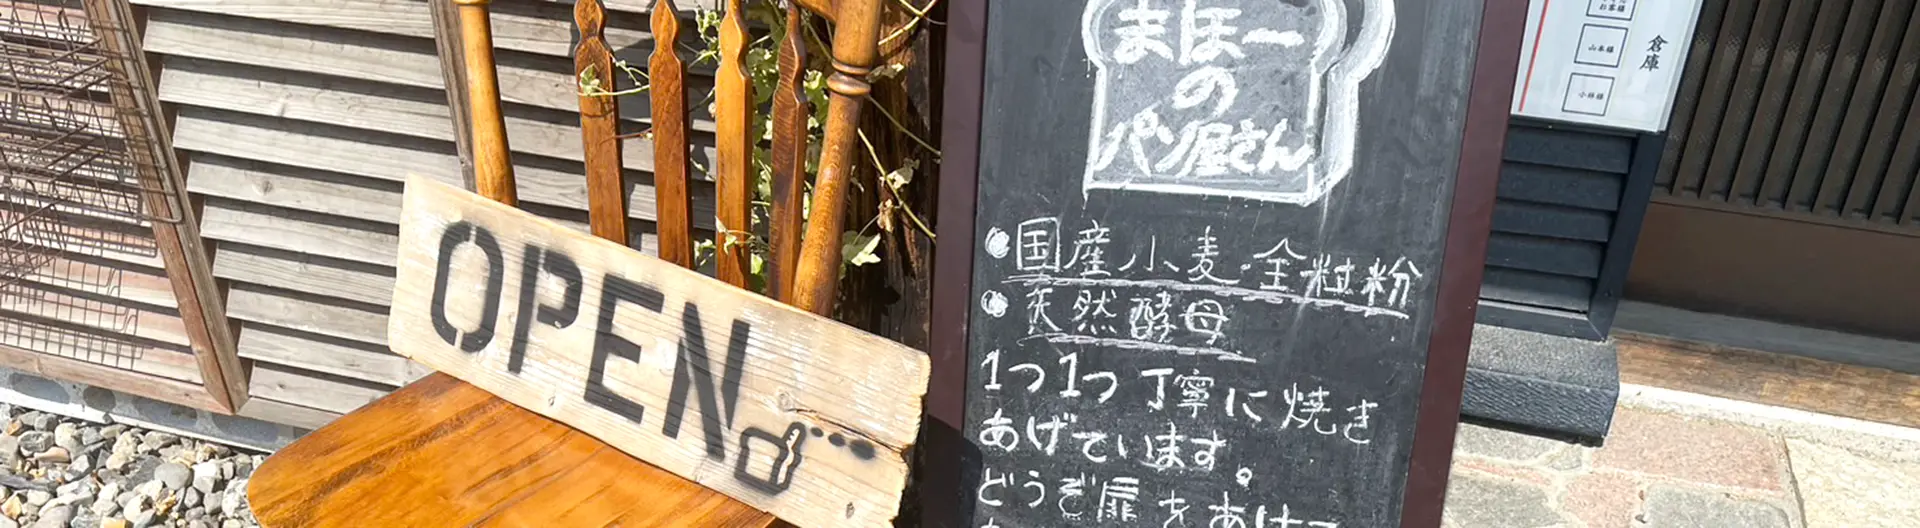 OPEN
まほーの
の
パン屋さん
国産小麦・全粒粉
天然酵母
1つ1つ丁寧に焼き
あげています。
どうぞ扉をあけて
お客様
山本様
小林様
倉庫